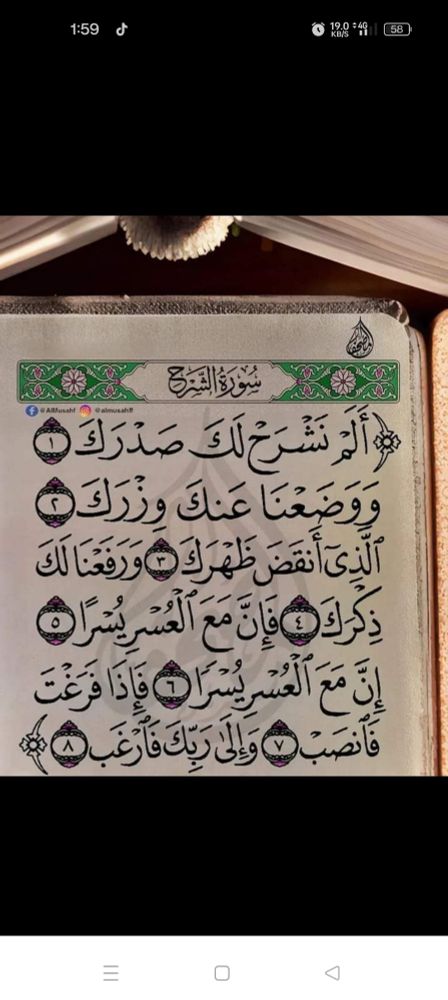 1:59
19.0 KB/S 4G 58
سُورَةُ الشَّرْحِ
@AlMusahf @almusahff
أَلَمْ نَشْرَحْ لَكَ صَدْرَكَ ١
وَوَضَعْنَا عَنكَ وِزْرَكَ ٢
ٱلَّذِىٓ أَنقَضَ ظَهْرَكَ ٣ وَرَفَعْنَا لَكَ
ذِكْرَكَ ٤ فَإِنَّ مَعَ ٱلْعُسْرِ يُسْرًا ٥
إِنَّ مَعَ ٱلْعُسْرِ يُسْرًا ٦ فَإِذَا فَرَغْتَ
فَٱنصَبْ ٧ وَإِلَىٰ رَبِّكَ فَٱرْغَب ٨